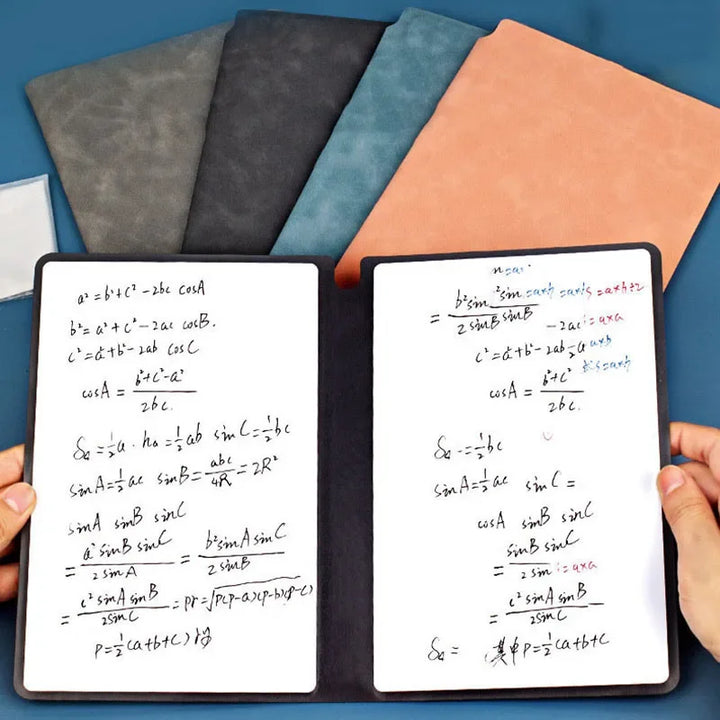 a² = b²+c² - 2bc cosA
b² = a² + c² - 2ac cosB.
c² = a²+b² - 2ab cosC
cosA = (b²+c²-a²)/(2bc.)
S△ = ½a · ha = ½ab sinC = ½bc
sinA = ½ac sinB = abc/4R = 2R²
sinA sinB sinC
= (a² sinB sinC)/(2 sinA) = (b² sinA sinC)/(2 sinB)
= (c² sinA sinB)/(2 sinC) = pr = √(p(p-a)(p-b)(p-c))
P = ½(a+b+c)
= (b² sin ² sin)/(2 sinB sinB) =a×b =a× S=a×h÷2
-2ac =a×a
c² = a²+b² - 2ab ½a a×b
cosA = (b²+c²)/(2bc.) S=a×h
S△ -= ½bc
sinA = ½ac sinC =
cosA sinB sinC
= (sinB sinC)/(2 sin) =a×a
= (c² sinA sinB)/(2 sinC)
S△ = 其中 P = ½(a+b+c